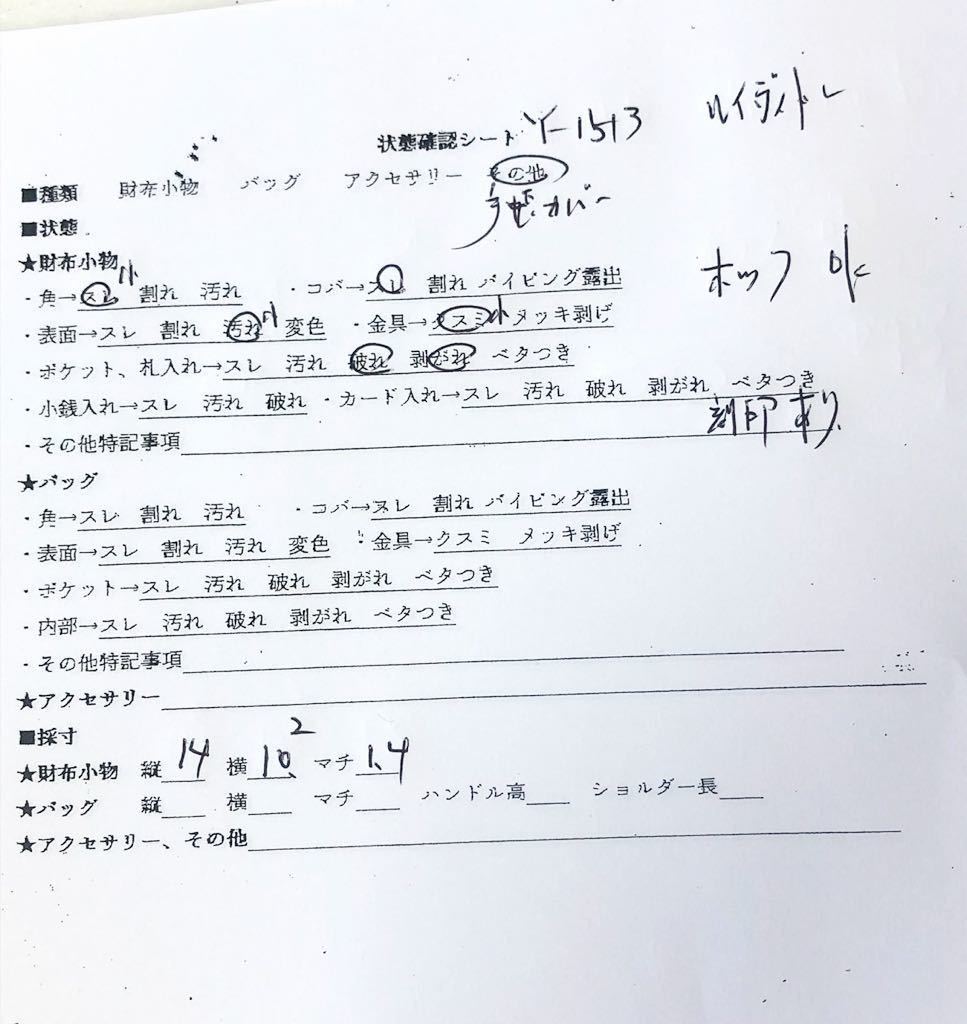 状態確認シート Y-1543 ルイヴィトン
■種類 財布小物 バッグ アクセサリー その他
手帳カバー
■状態
★財布小物
ホック ok
・角→スレ小 割れ 汚れ ・コバ→スレ 割れ パイピング露出
・表面→スレ 割れ 汚れ小 変色 ・金具→クスミ小 メッキ剥げ
・ポケット、札入れ→スレ 汚れ 破れ 剥がれ ベタつき
・小銭入れ→スレ 汚れ 破れ ・カード入れ→スレ 汚れ 破れ 剥がれ ベタつき
・その他特記事項 刻印あり
★バッグ
・角→スレ 割れ 汚れ ・コバ→スレ 割れ パイピング露出
・表面→スレ 割れ 汚れ 変色 ・金具→クスミ メッキ剥げ
・ポケット→スレ 汚れ 破れ 剥がれ ベタつき
・内部→スレ 汚れ 破れ 剥がれ ベタつき
・その他特記事項
★アクセサリー
■採寸
★財布小物 縦14 横10.2 マチ1.4
★バッグ 縦 横 マチ ハンドル高 ショルダー長
★アクセサリー、その他